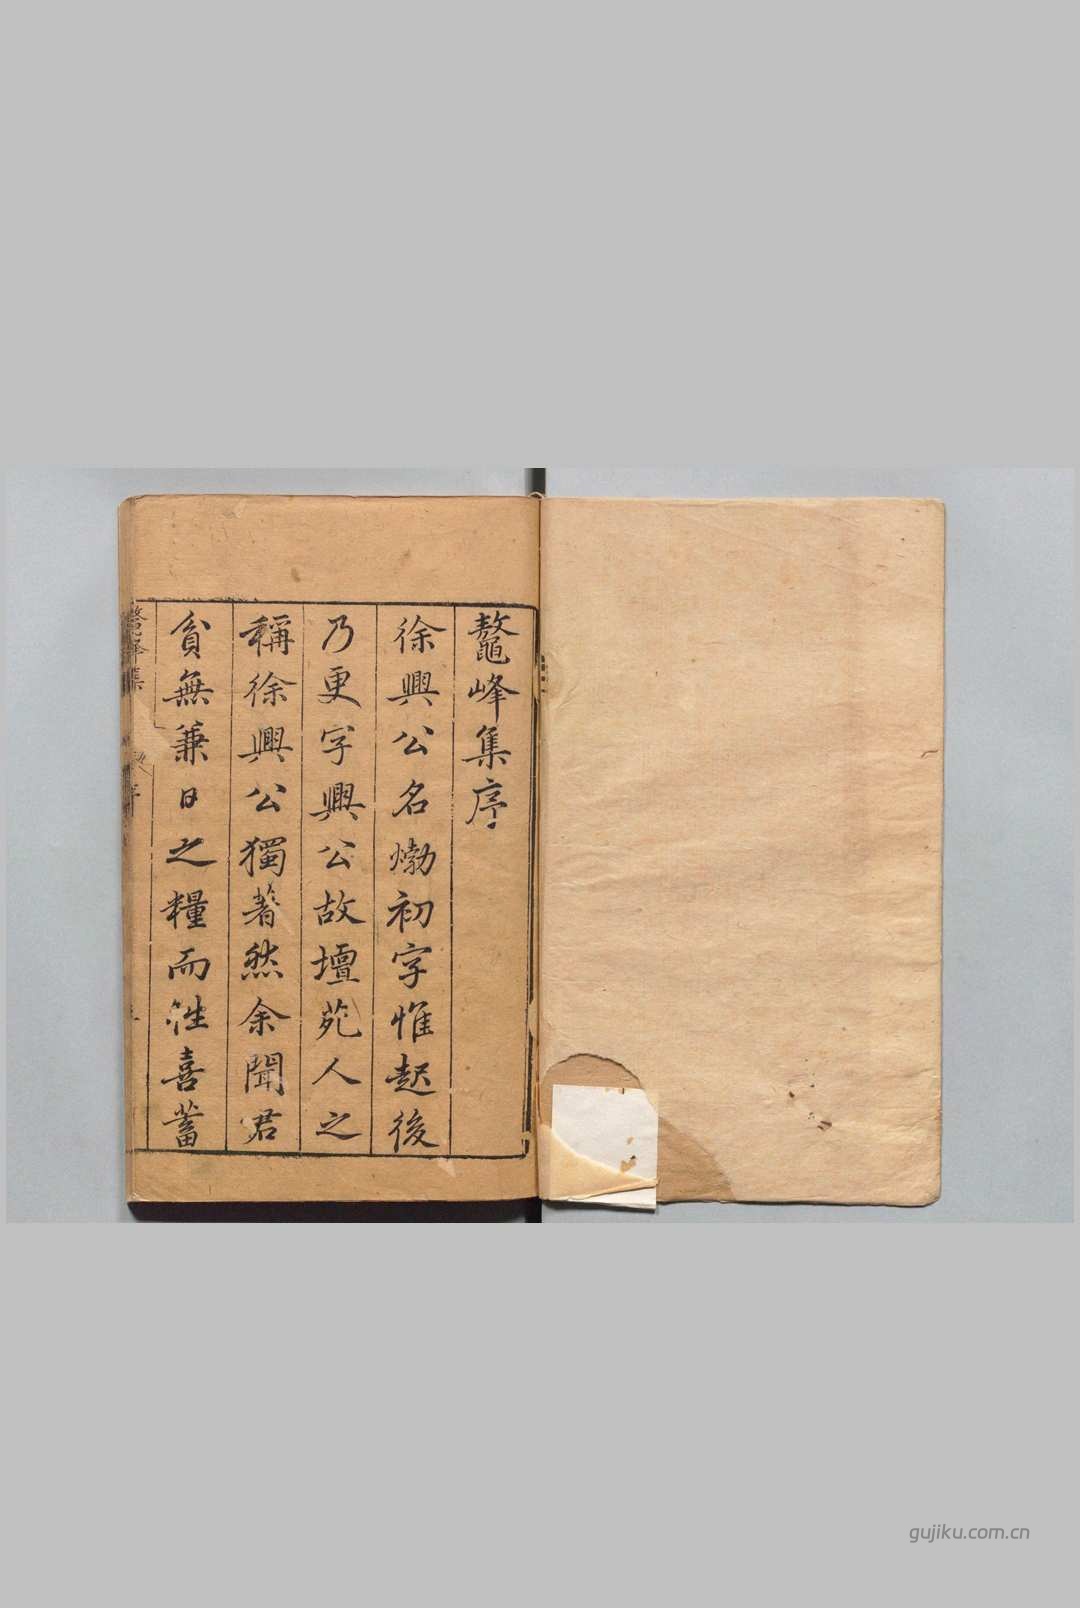 鼇峰集序
徐興公名㶿初字惟起後
乃更字興公故壇苑人之
稱徐興公獨著然余聞君
貧無兼日之糧而性喜蓄
鼇峰集
序
gujiku.com.cn